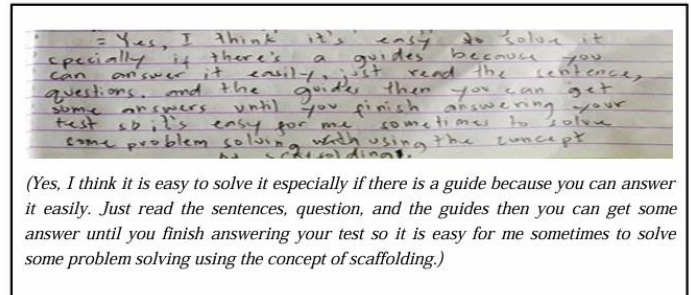 = Yes, I think it's easy to solve it
cpecially if there's a guides because you
can answer it easily, just read the sentence,
questions, and the guides then you can get
some answers until you finish answering your
test so it's easy for me sometimes to solve
some problem solving with using the concept
(Yes, I think it is easy to solve it especially if there is a guide because you can answer
it easily. Just read the sentences, question, and the guides then you can get some
answer until you finish answering your test so it is easy for me sometimes to solve
some problem solving using the concept of scaffolding.)